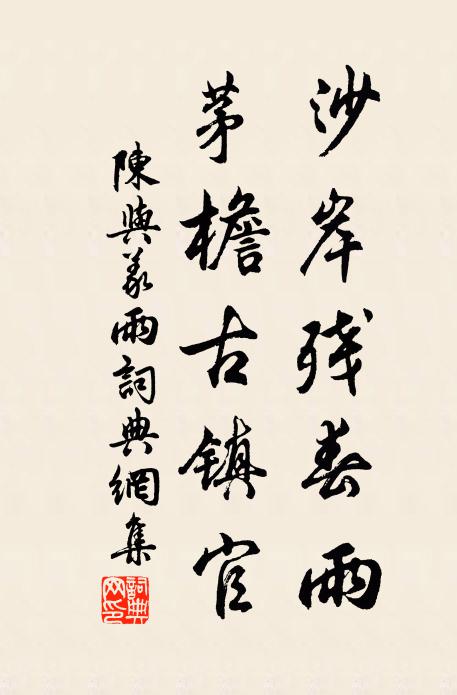 沙岸残春雨
茅檐古镇官
陳與義雨詞典網集
詞典网印